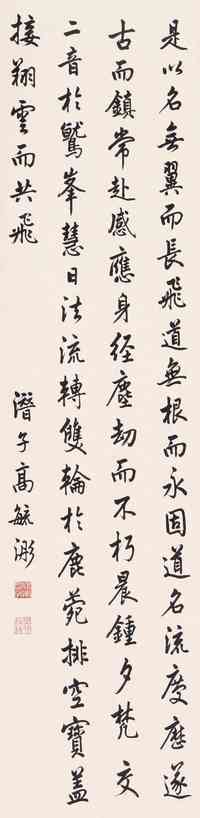 是以名無翼而長飛道無根而永固道名流慶歷遂
古而鎮常赴感應身經塵劫而不朽晨鍾夕梵交
二音於鷲峯慧日法流轉雙輪於鹿菀排空寶蓋
接翔雲而共飛
潛子高毓浵